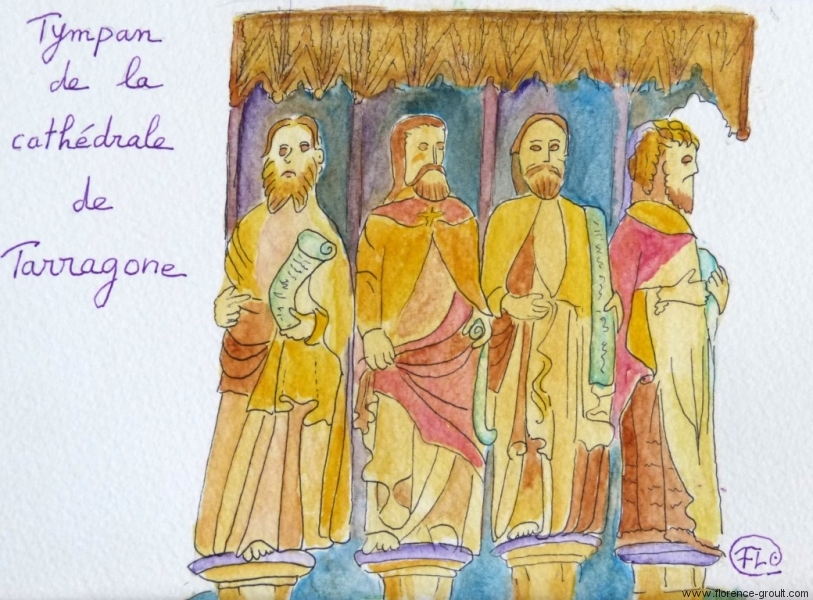 Tympan
de la
cathédrale
de
Tarragone
FLO
www.florence-groult.com